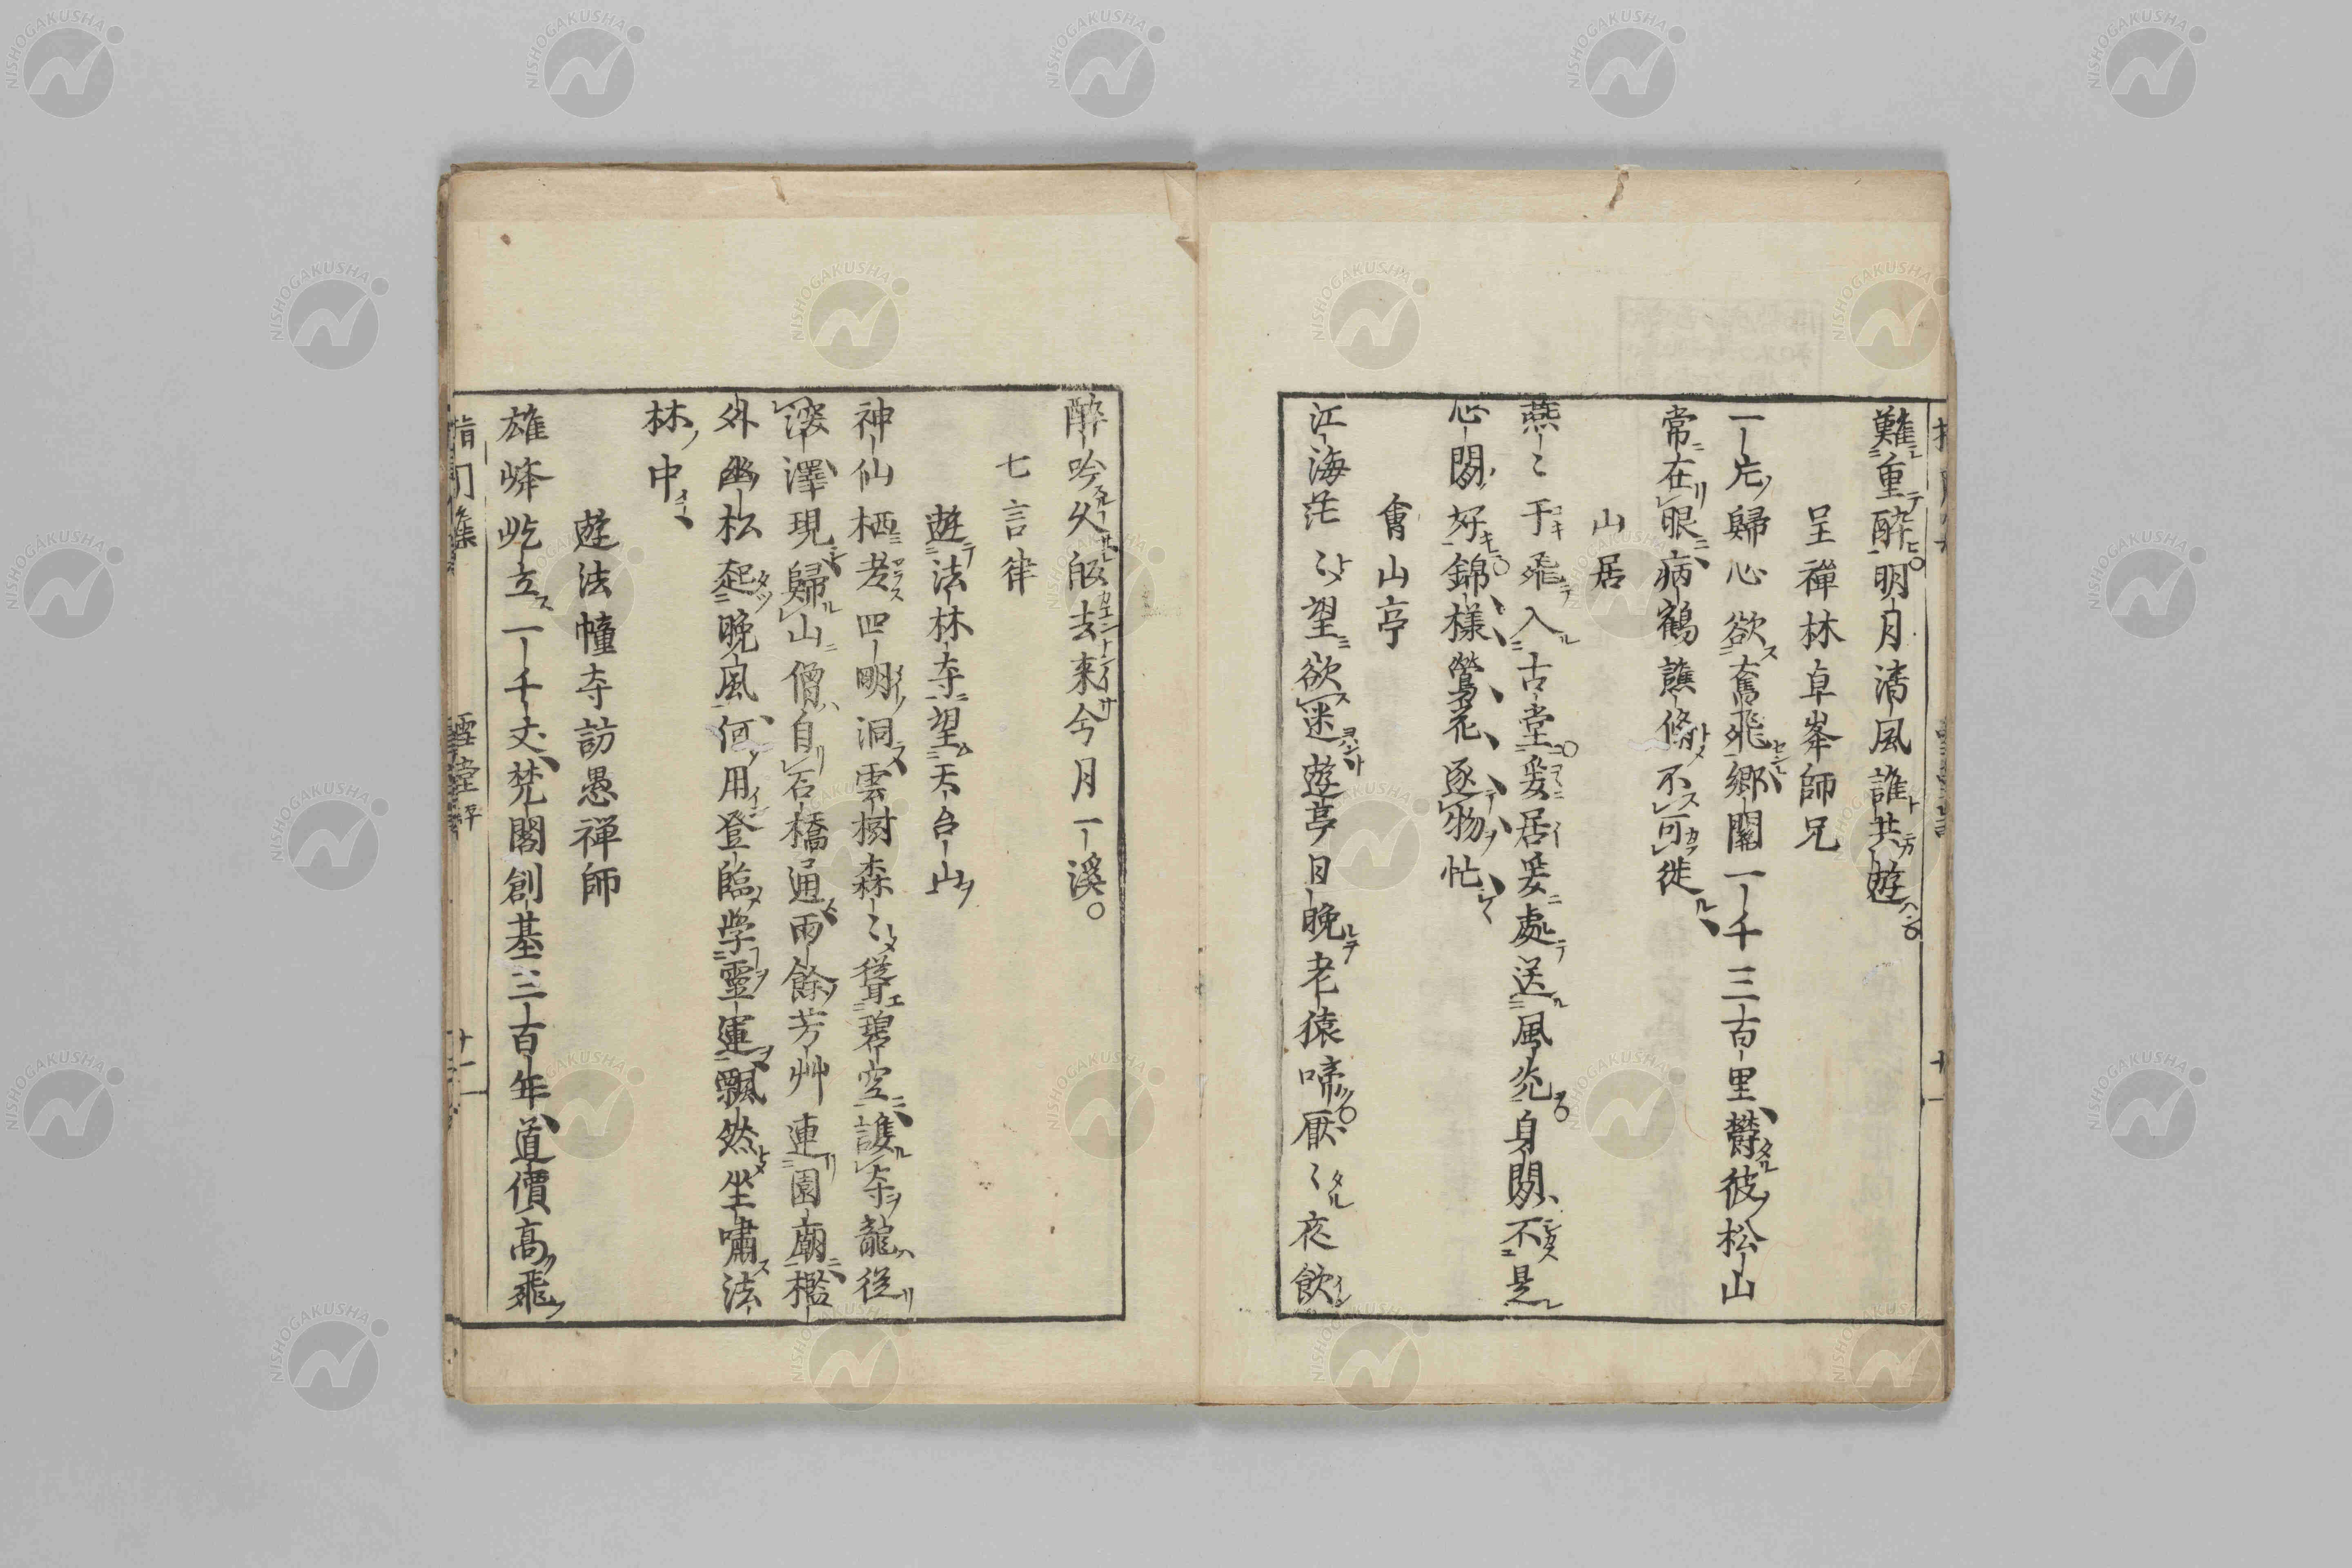 難重酔明月清風誰共遊
呈禪林卓峯師兄
一片歸心欲奮飛郷關一千三百里欝彼松山
常在眼病鶴譙翛不可徙
山居
燕〻于飛入古堂爰居爰處送風光身閑不是
心閑好錦様鶯花逐物忙
會山亭
江海茫〻望欲迷遊亭日晩老猿啼厭〻夜飲
醉吟久皈去來今月一溪
七言律
遊法林寺望天台山
神仙栖老四明洞雲樹森〻聳碧空護寺龍從
深澤現歸山僧自石橋通雨餘芳艸連園廟檻
外幽松起晩風何用登臨学靈運飄然坐嘯法
林中
遊法幢寺訪愚禅師
雄峰屹立一千丈梵閣創基三百年道價高飛
指月集 雪堂 十一
NISHOGAKUSHA